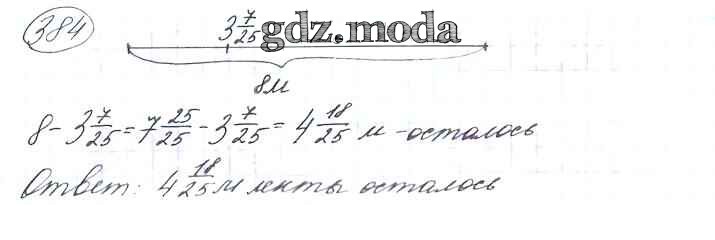 384
3 7/25 gdz.moda
8м
8 - 3 7/25 = 7 25/25 - 3 7/25 = 4 18/25 м - осталось
Ответ: 4 18/25 м ленты осталось